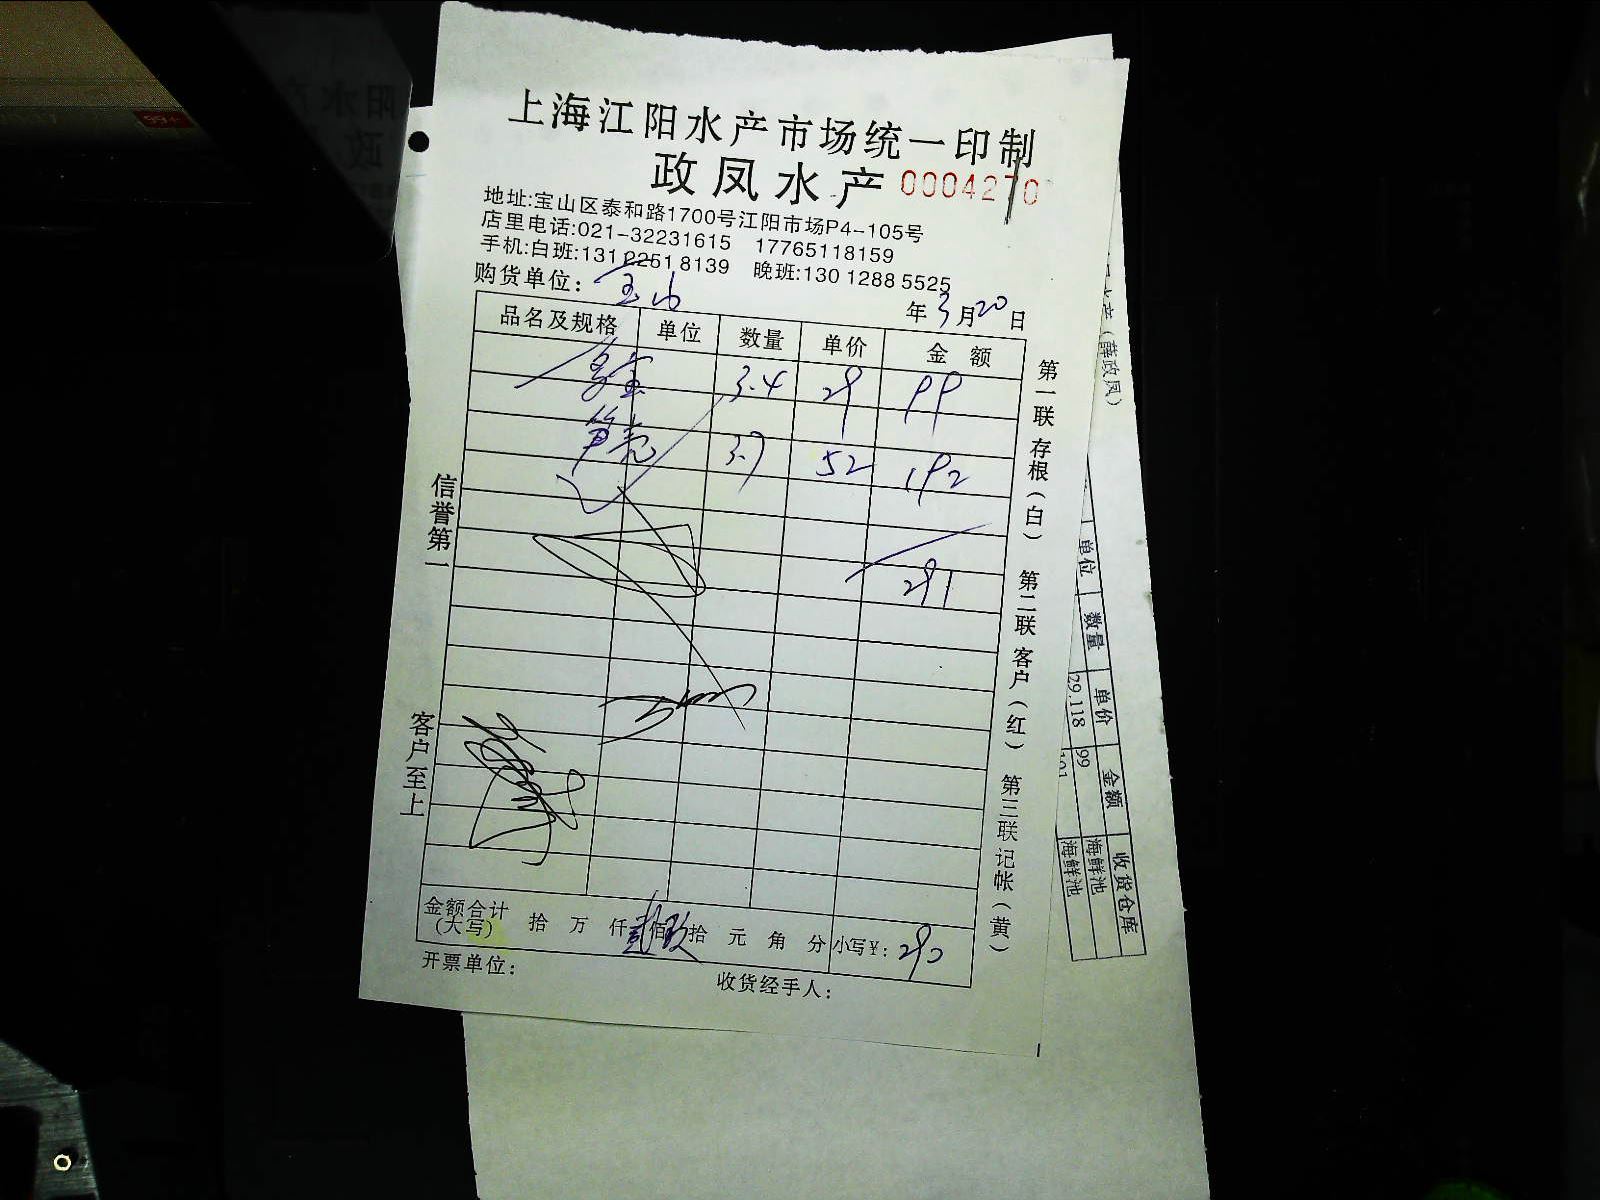 上海江阳水产市场统一印制
政凤水产 0004270
地址:宝山区泰和路1700号江阳市场P4-105号
店里电话:021-32231615 17765118159
手机:白班:131 2251 8139 晚班:130 1288 5525
购货单位: 宝山 年3月20日
品名及规格 单位 数量 单价 金额
3.4 29 99
3.7 52 192
291
信誉第一
客户至上
第一联存根(白) 第二联客户(红) 第三联记帐(黄)
金额合计(大写) 拾 万 仟 贰佰 玖拾 元 角 分 小写¥: 290
开票单位: 收货经手人:
水产(薛政凤)
单位 数量 单价 金额 收货仓库
29.118 99 海鲜池
海鲜池